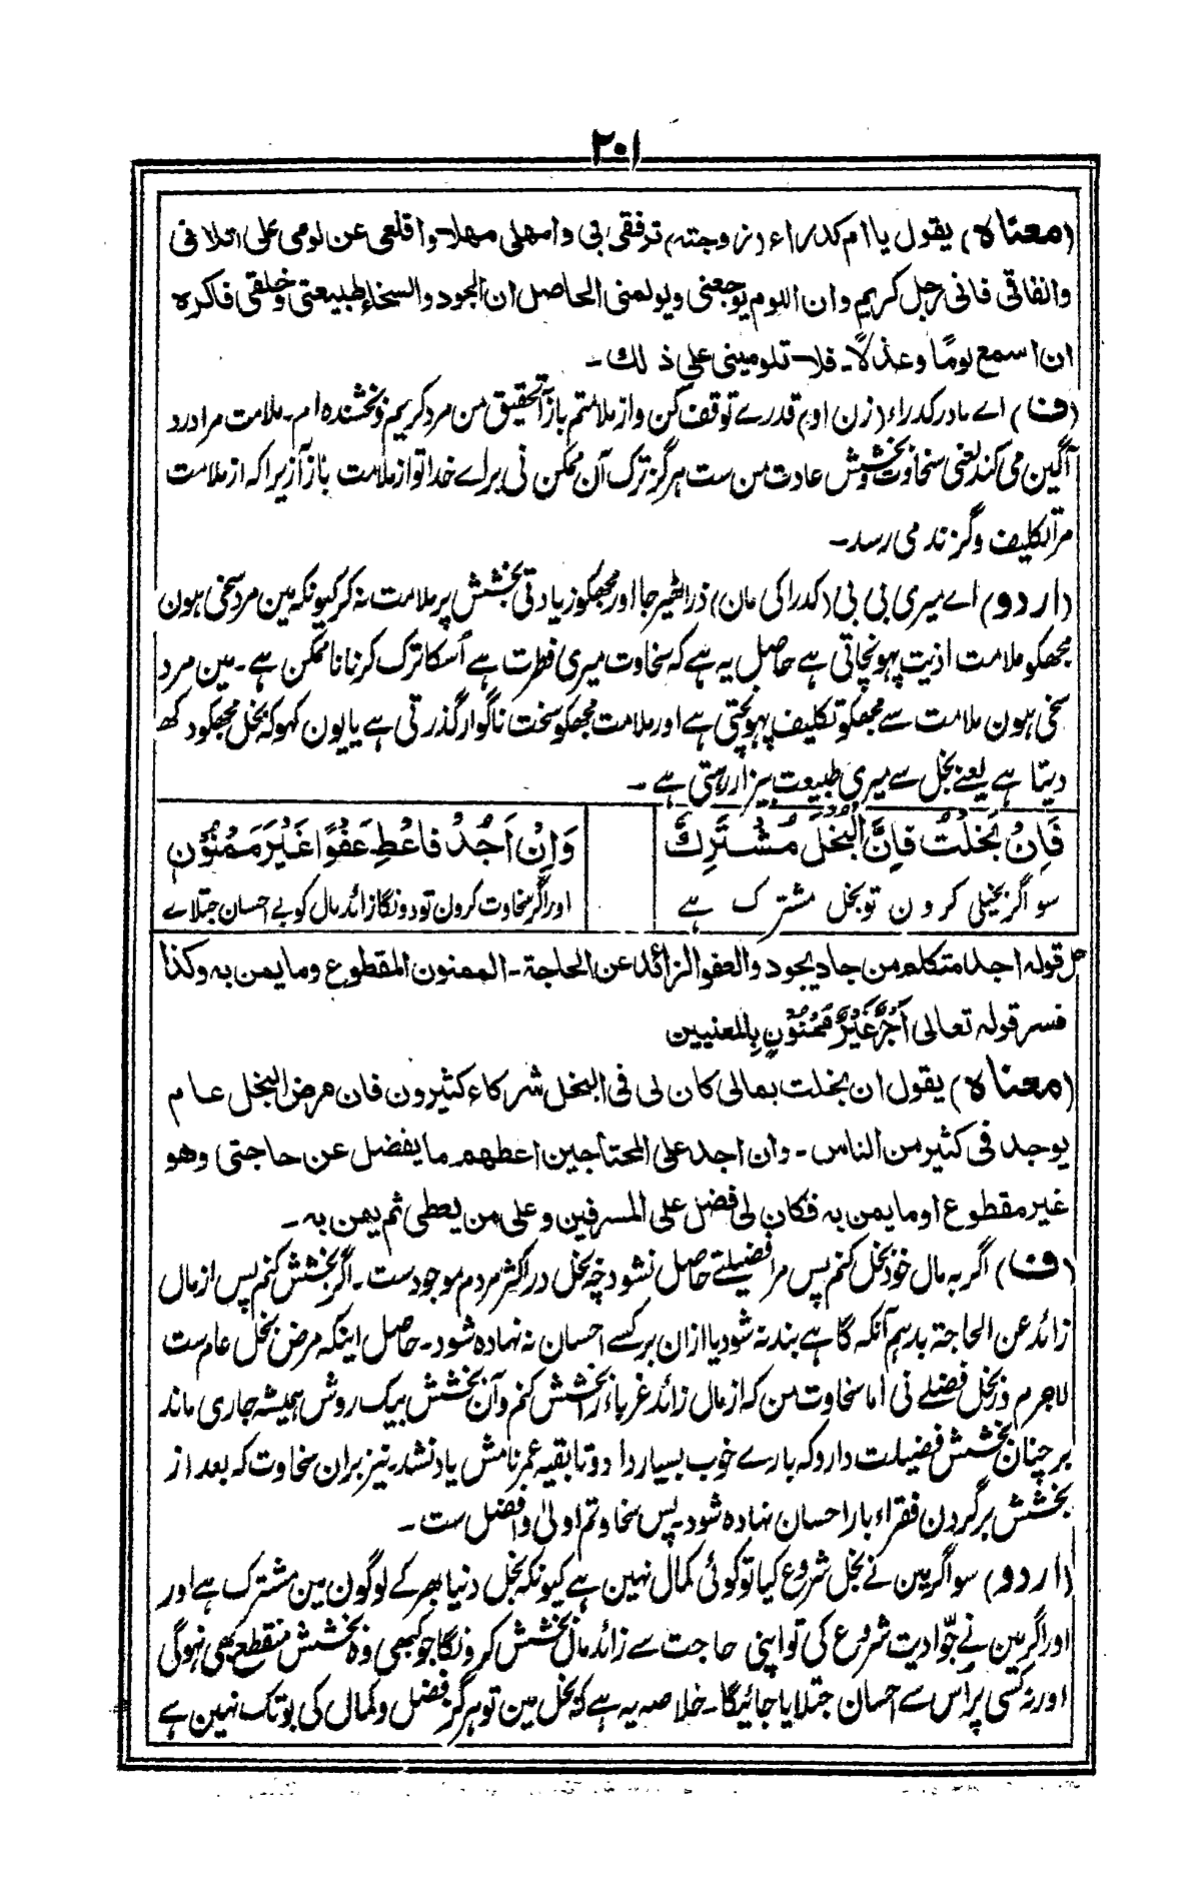 ٢٠١
(معناہ) یقول یا ام کدراء (زوجتہ) ترفقی بی وامھلی مھلا واقلعی عن لومی علی اتلافی
وانفاقی فانی رجل کریم وان اللوم یوجعنی ویولمنی الحاصل ان الجود والسخاء طبیعتی وخلقی فاکرہ
ان اسمع لومًا وعذلًا۔ فلا تلومینی علی ذلك۔
(ف) اے مادر کدراء (زن او) قدرے توقف کن واز ملامتم بازآ تحقیق من مرد کریم و بخشندہ ام۔ ملامت مرا درد
آگین می کند یعنی سخاوت و بخشش عادت من ست ہرگز ترک آن ممکن نی براے خدا تو از ملامت بازآ زیرا کہ از ملامت
مرا تکلیف و گزند می رسد۔
(اردو) اے میری بی بی (کدرا کی مان) ذرا ٹھیر جا اور مجھکو زیادتی بخشش پر ملامت نہ کر کیونکہ مین مرد سخی ہون
مجھکو ملامت اذیت پہونچاتی ہے حاصل یہ ہے کہ سخاوت میری فطرت ہے اُسکا ترک کرنا ناممکن ہے۔ مین مرد
سخی ہون ملامت سے مجھکو تکلیف پہونچتی ہے اور ملامت مجھکو سخت ناگوار گذرتی ہے یا یون کہو کہ بخل مجھکو دکھ
دیتا ہے یعنے بخل سے میری طبیعت بیزار رہتی ہے۔
فَاِنْ بَخِلْتُ فَاِنَّ الْبُخْلَ مُشْتَرِكٌ وَاِنْ اَجُدْ فاُعْطِ عَفْوًا غَیْرَ مَمْنُوْنٍ
سو اگر بخیلی کرون تو بخل مشترک ہے اور اگر سخاوت کرون تو دونگا زائد مال کو بے احسان جتلائے
حل قولہ اجد متکلم من جاد یجود والعفو الزائد عن الحاجۃ۔ الممنون المقطوع وما یمن بہ وکذا
فسر قولہ تعالی اَجْرٌ غَیْرُ مَمْنُوْنٍ بِالمعنیین
(معناہ) یقول ان بخلت بمالی کان لی فی البخل شرکاء کثیرون فان مرض البخل عام
یوجد فی کثیر من الناس۔ وان اجد علی المحتاجین اعطھم ما یفضل عن حاجتی وھو
غیر مقطوع او ما یمن بہ فکان لی فضل علی المسرفین وعلی من یعطی ثم یمن بہ۔
(ف) اگر بہ مال خود بخل کنم پس مرا فضیلتے حاصل نشود چہ بخل در اکثر مردم موجود ست۔ اگر بخشش کنم پس از مال
زائد عن الحاجۃ بدہم آنکہ گاہے بند نہ شود یا ازان بر کسے احسان نہ نہادہ شود۔ حاصل اینکہ مرض بخل عام ست
لاجرم در بخل فضلے نی اما سخاوت من کہ از مال زائد غرباء را بخشش کنم و آن بخشش بیک روش ہمیشہ جاری ماند
بر چنان بخشش فضیلت دارد کہ بارے خوب بسیار داد و تا بقیہ عمر نامش یاد نشد۔ نیز بران سخاوت کہ بعد از
بخشش بر گردن فقراء بار احسان نہادہ شود۔ پس سخاوتم اولی و افضل ست۔
(اردو) سو اگر مین نے بخل شروع کیا تو کوئی کمال نہین ہے کیونکہ بخل دنیا بھر کے لوگون مین مشترک ہے اور
اور اگر مین نے جوّادیت شروع کی تو اپنی حاجت سے زائد مال بخشش کرونگا جو کبھی وہ بخشش منقطع بھی نہوگی
اور نہ کسی پر اس سے احسان جتلایا جائیگا۔ خلاصہ یہ ہے کہ بخل مین تو ہرگز فضل و کمال کی بو تک نہین ہے